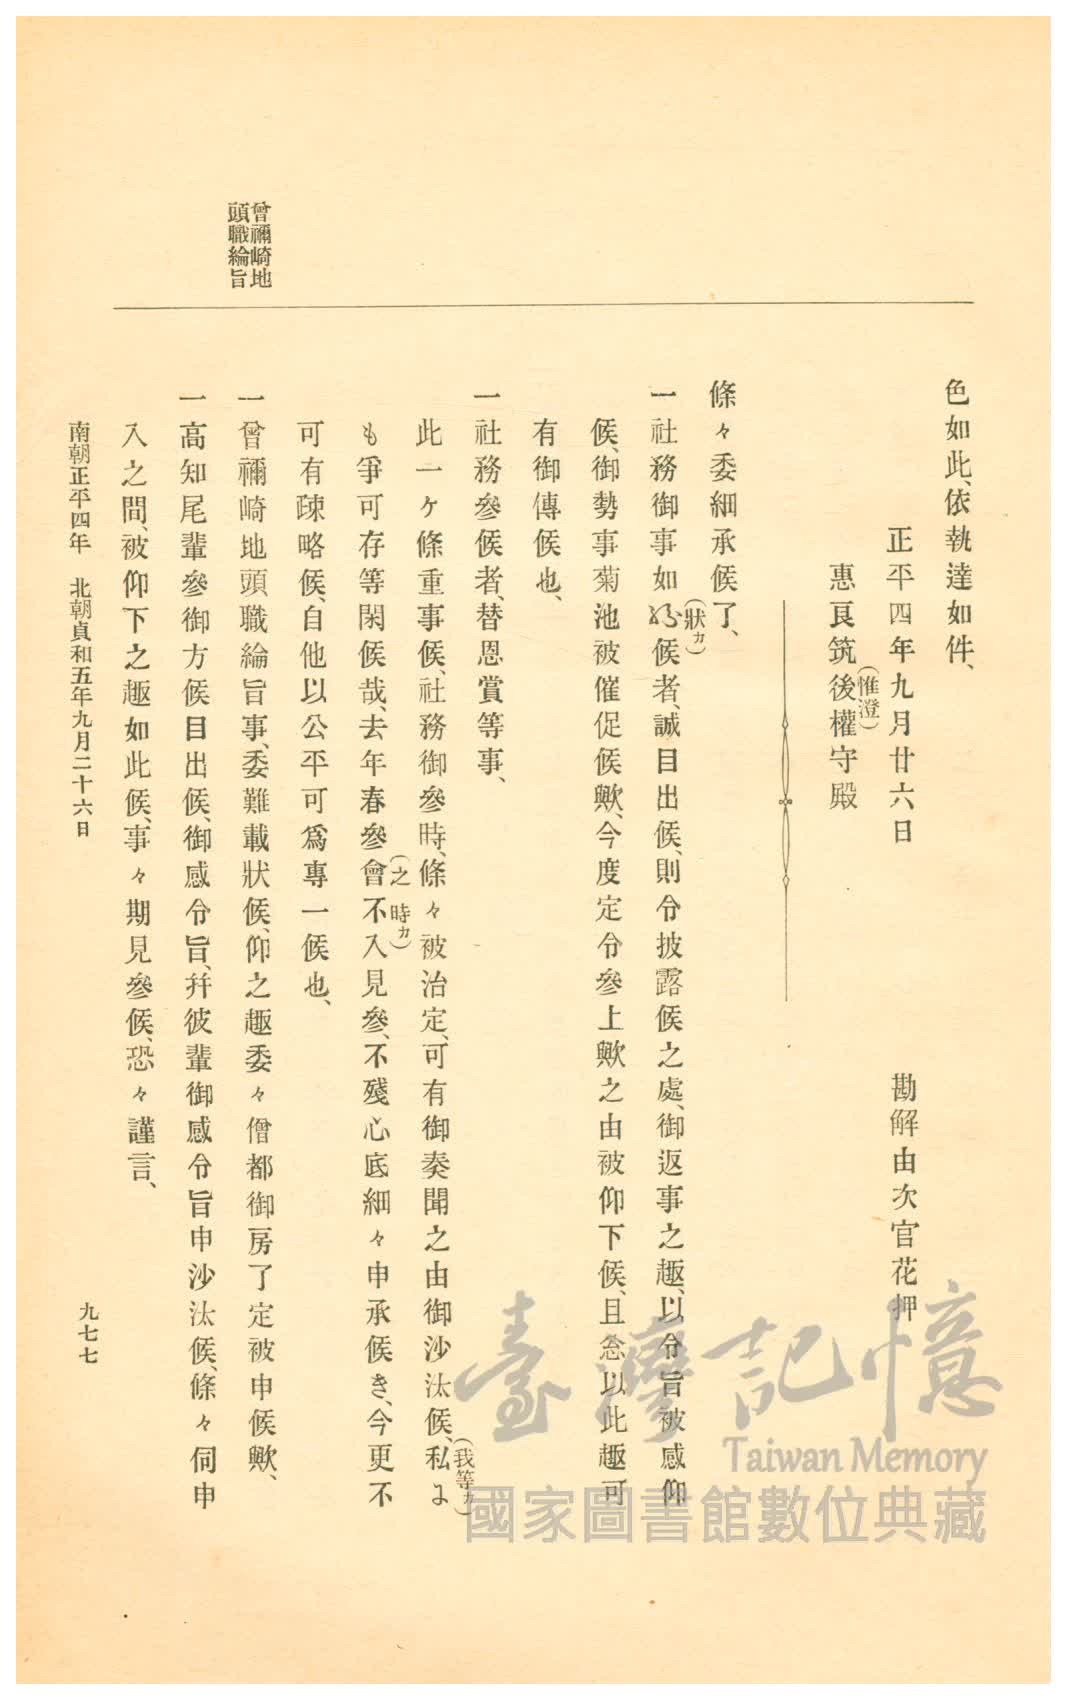 色如此、依執達如件、
正平四年九月廿六日　勘解由次官花押
惠良筑後權守殿
(惟澄)
條々委細承候了、
一社務御事如此候者、誠目出候、則令披露候之處、御返事之趣、以令旨被感仰
(狀カ)
候、御勢事菊池被催促候歟、今度定令參上歟之由被仰下候、且念以此趣可
有御傳候也、
一社務參候者、替恩賞等事、
此一ケ條重事候、社務御參時、條々被治定、可有御奏聞之由御沙汰候、私よ
(我等カ)
も爭可存等閑候哉、去年春參會不入見參、不殘心底細々申承候き、今更不
(之時カ)
可有疎略候、自他以公平可爲專一候也、
一曾禰崎地頭職綸旨事、委難載狀候、仰之趣委々僧都御房了定被申候歟、
一高知尾輩參御方候目出候、御感令旨、幷彼輩御感令旨申沙汰候、條々伺申
入之間、被仰下之趣如此候、事々期見參候、恐々謹言、
曾禰崎地
頭職綸旨
南朝正平四年　北朝貞和五年九月二十六日
九七七
臺灣記憶
Taiwan Memory
國家圖書館數位典藏